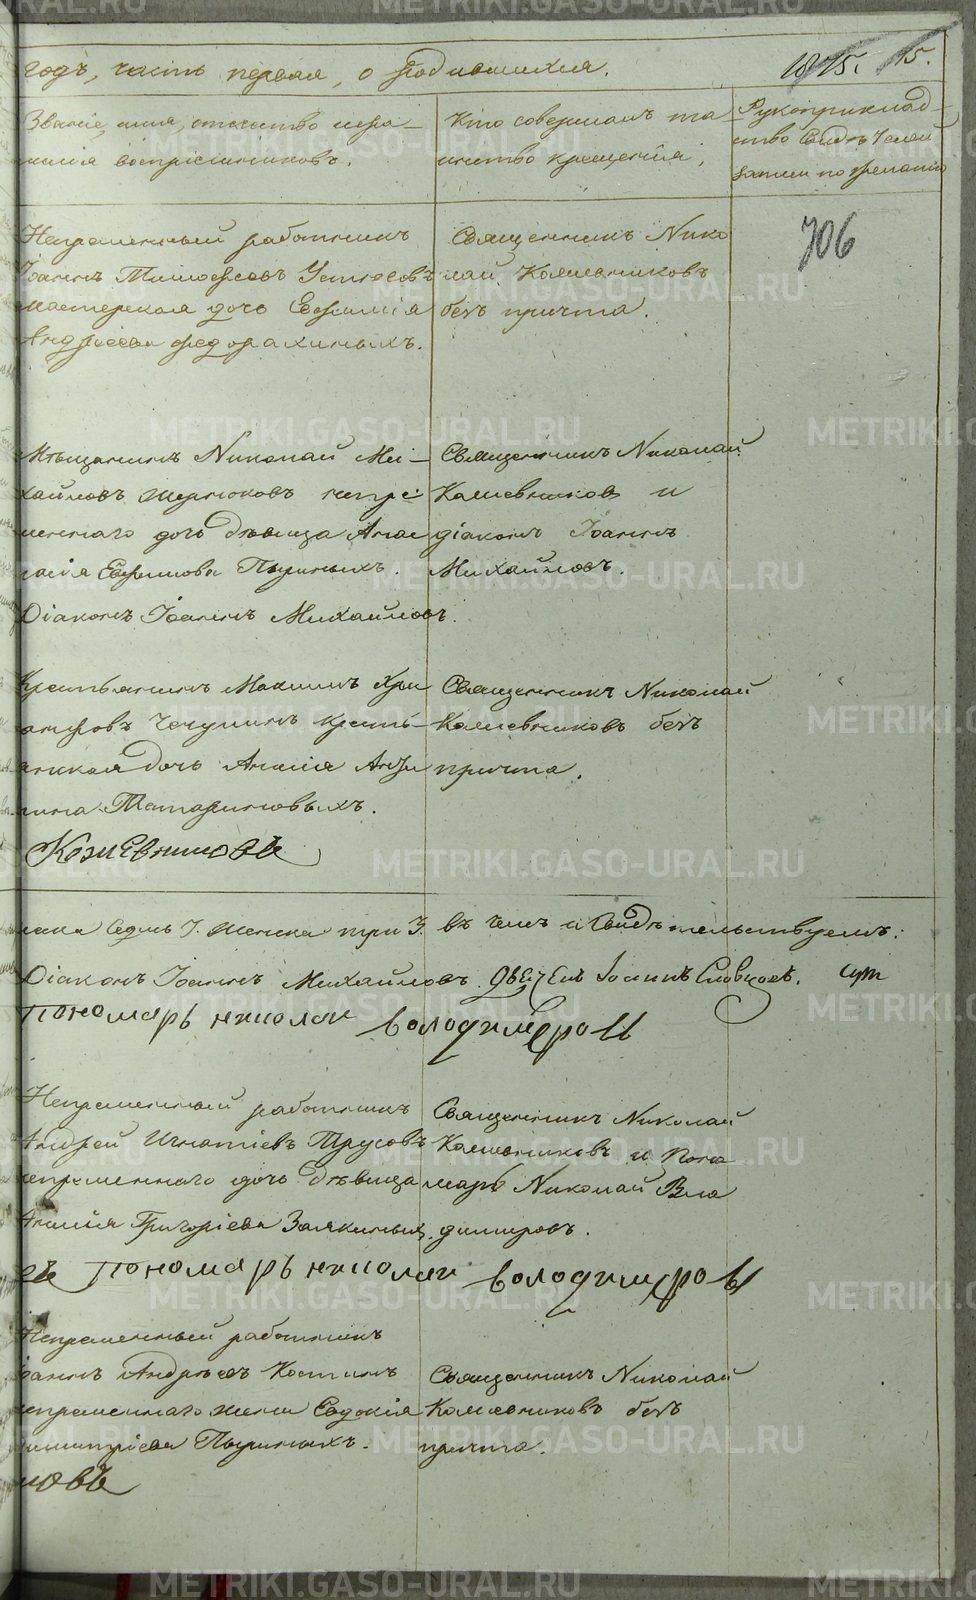 годъ, часть первая, о родившихся.
1845. 15.
Званіе, имя, отчество и фами-
милія воспріемниковъ.
Кто совершалъ та
инство крещенія.
Рукоприклад-
ство Свидѣтелей
записи по желанію
706
Непременный работникъ
Іоаннъ Тимоѳеевъ Устюговъ
мастерская дочь Евфимія
Андреева Федорахиныхъ.
Священникъ Нико
лай Кожевниковъ
безъ причта.
Мѣщанинъ Николай Ми-
хайловъ непре
меннаго дочь дѣвица Анас
тасія Ефимова Пьриныхъ.
Діаконъ Іоаннъ Михайловъ.
Священникъ Николай
Кожевниковъ и
діаконъ Іоаннъ
Михайловъ.
Крестьянинъ Максимъ Хри
санфовъ кресть-
янская дочь Анисія Андр
Татариновыхъ.
Кожевниковъ
Священникъ Николай
Кожевниковъ безъ
причта.
седмь 7. женска три 3. въ чемъ и свидѣтельствуемъ:
Діаконъ Іоаннъ Михайловъ. Іоаннъ Словцовъ.
пономарь николай володимеровъ
Непременный работникъ
Андрей Игнатіевъ Трусовъ
непременнаго дочь дѣвица
Анисія Григоріева Заякиныхъ.
Священникъ Николай
Кожевниковъ и Поно
марь Николай Вла
димировъ.
въ пономарь николай володимеровъ
Непременный работникъ
Іоаннъ Андреевъ Костинъ
непременнаго жена Евдокія
Димитріева Пьриныхъ.
Священникъ Николай
Кожевниковъ безъ
причта.
ковъ